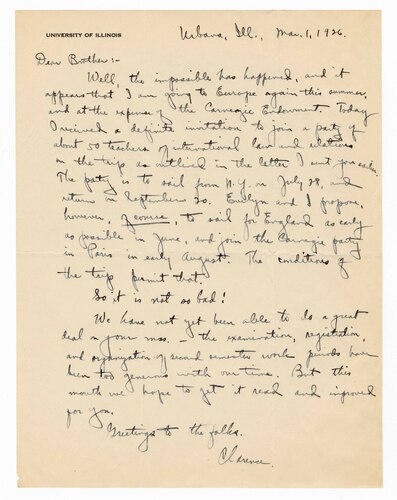 UNIVERSITY OF ILLINOIS
Urbana, Ill., Mar. 1, 1926.
Dear Brother :-
Well, the impossible has happened, and it
appears that I am going to Europe again this summer,
and at the expense of the Carnegie Endowment. Today
I received a definite invitation to join a party of
about 50 teachers of international law and relations
on the trip as outlined in the letter I sent you earlier.
The party is to sail from N.Y. on July 28, and
return in September 20. Evelyn and I propose,
however, of course, to sail for England as early
as possible in June, and join the Carnegie party
in Paris in early August. The conditions of
the trip permit that.
So it is not so bad!
We have not yet been able to do a great
deal on your mss. - the examination, registration,
and organization of second semester work periods have
been too generous with our time. But this
month we hope to get it read and improved
for you.
Greetings to the folks.
Clarence.